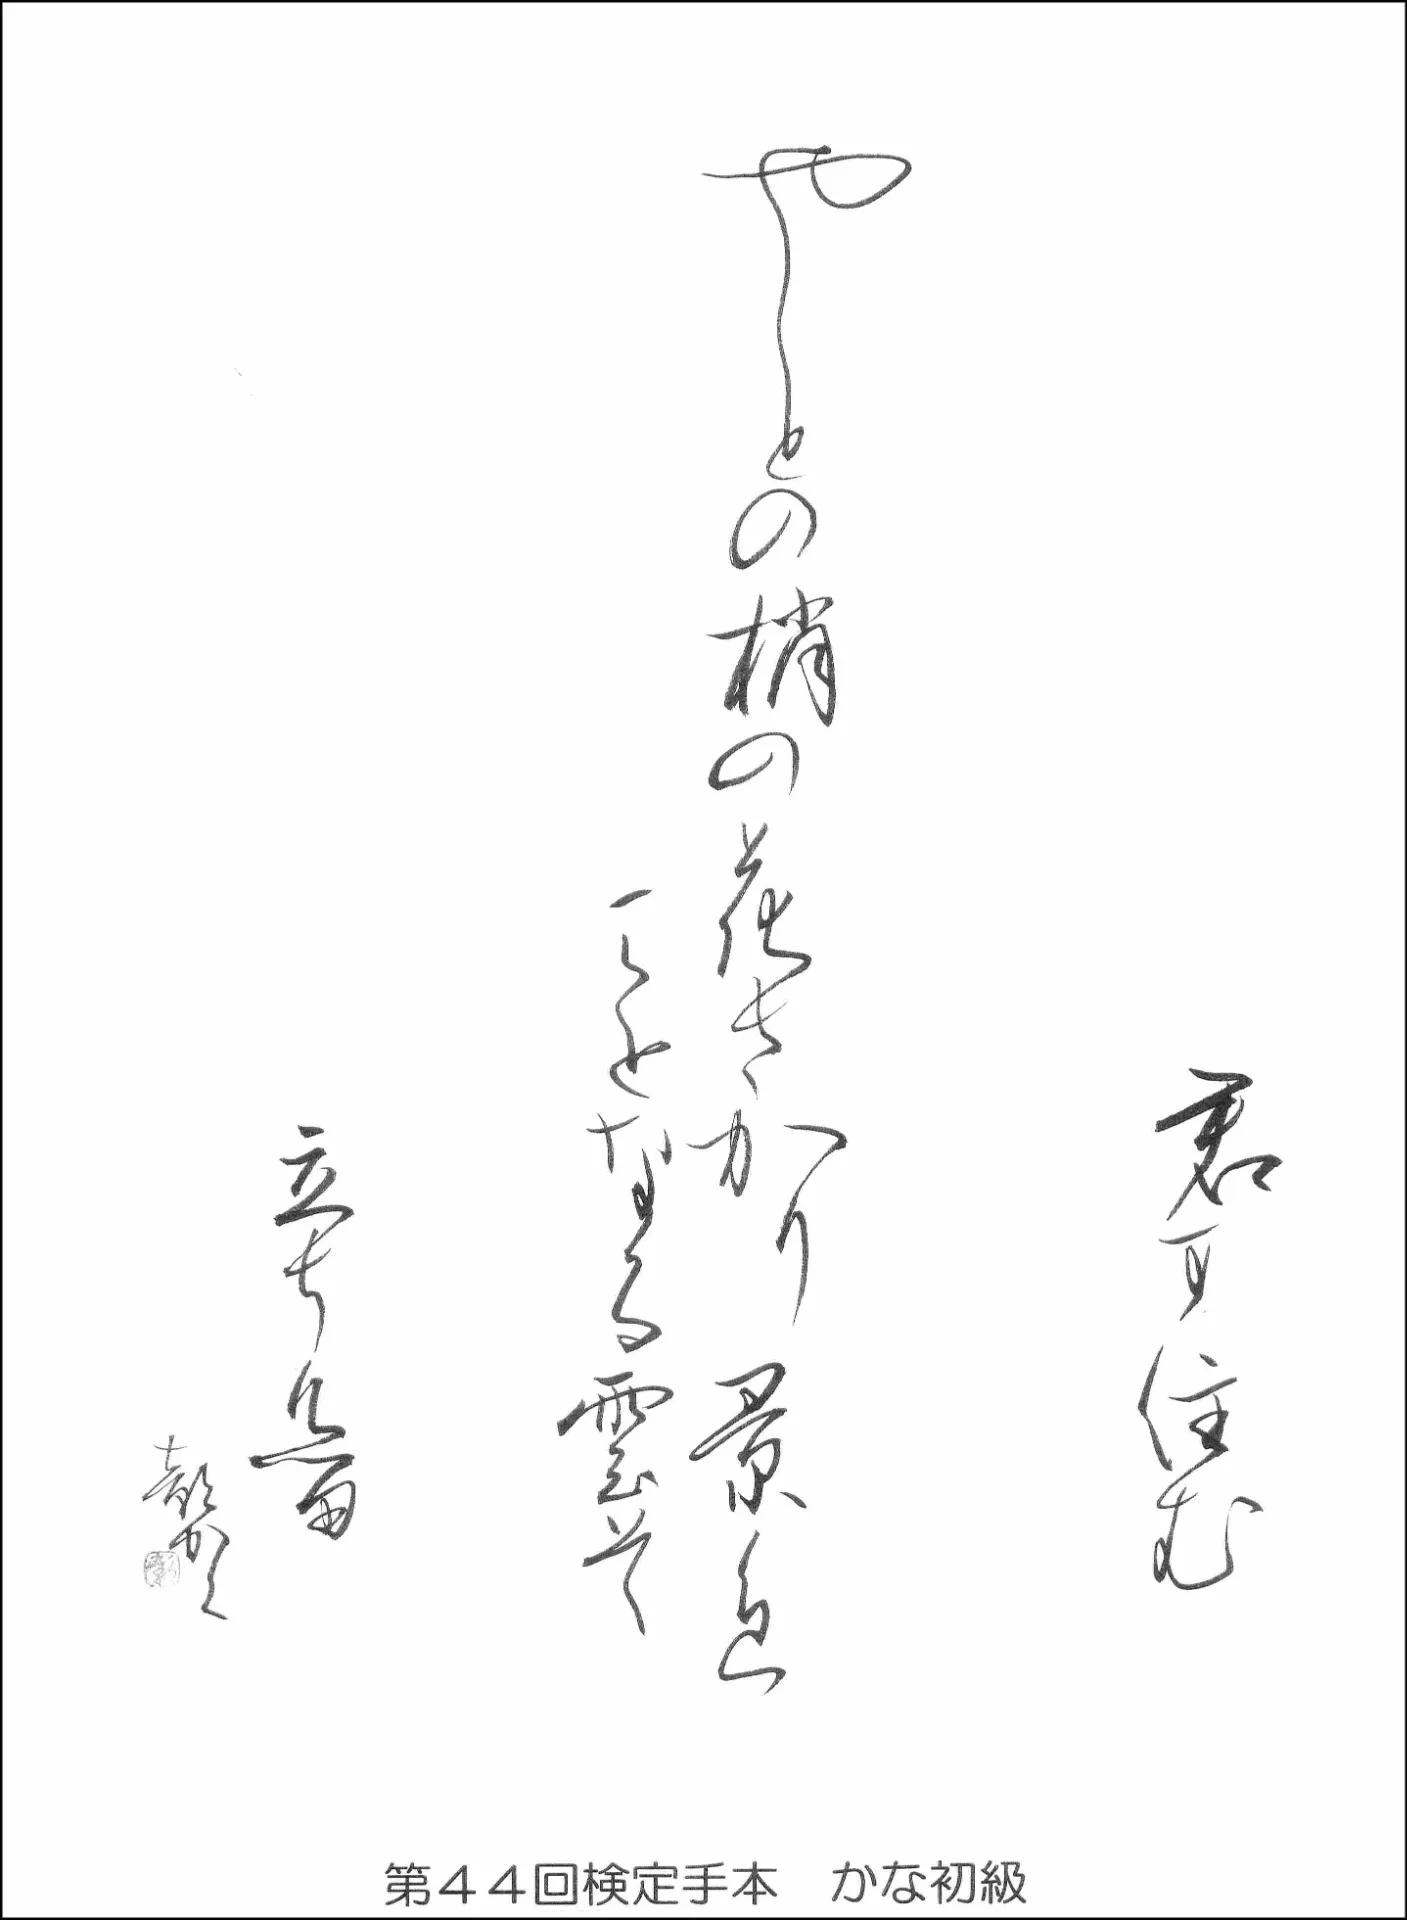 君可住む
やとの梢の花さかり景色
ことなる雲そ
立ち介留
第４４回検定手本　かな初級